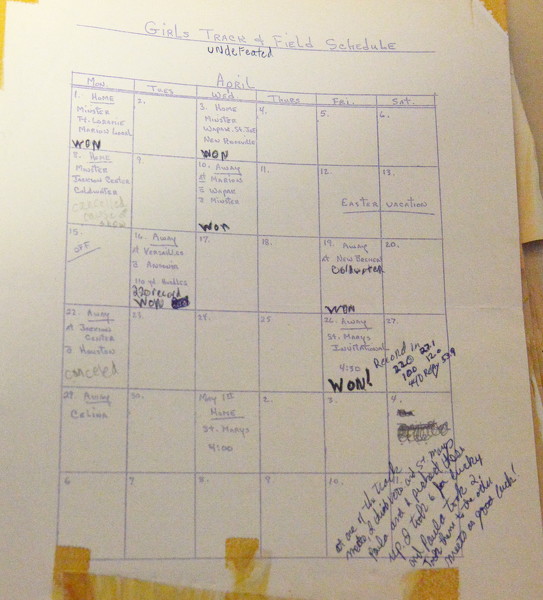 Girls Track & Field Schedule
undefeated
April
Mon
Tues
Wed
Thurs
Fri.
Sat.
1. Home
Minster
Ft. Loramie
Marion Local
WON
2.
3. Home
Minster
Wapak. St. Joe
New Knoxville
WON
4.
5.
6.
8. Home
Minster
Jackson Center
Coldwater
canceled
9.
10. Away
at Marion
Wapak
& Minster
WON
11.
12.
13.
Easter Vacation
15.
OFF
16. Away
at Versailles
& Ansonia
110 yd. Hurdles
220 record
WON
17.
18.
19. Away
at New Bremen
Coldwater
WON
20.
22. Away
at Jackson
Center
& Houston
canceled
23.
24.
25
26. Away
St. Marys
Invitational
4:30
WON!
27.
Record in
220 27.1
100 12.0
440 Relay 53.9
29. Away
Celina
30.
May 1st
Home
St. Marys
4:00
2.
3.
4.
6
7.
8.
9.
10.
11.
at one of the track
meets, I think it was St. Marys
Paula and I pushed
up I took 6 for lucky
and Paula took 2,
took them to the other
meets as good luck!